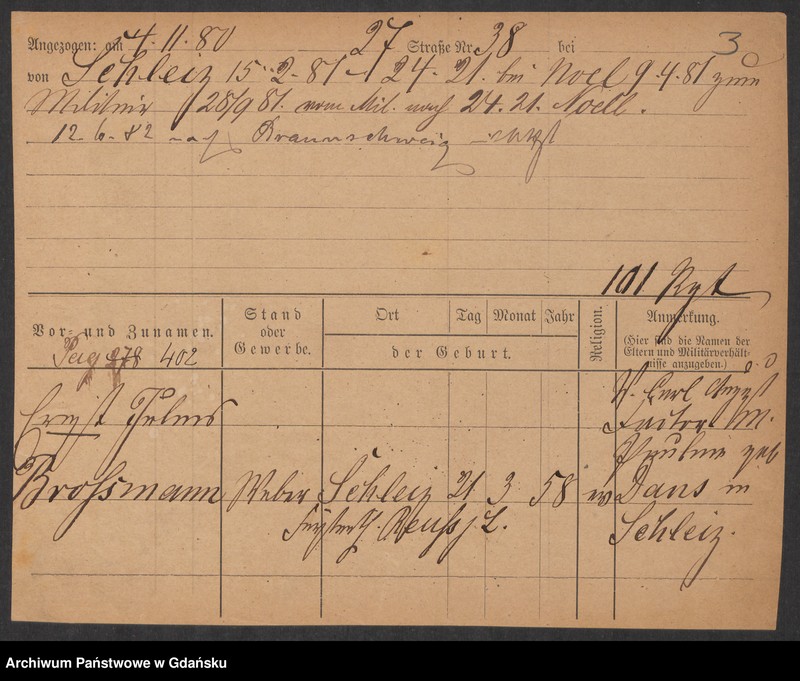 3
Angezogen: am 4. 11. 80 27 Straße Nr. 38 bei
von Schleiz 15. 2. 81 24. 21. bei Noel 9.4.81 zum
Militair 28/9 81. vom Mil. nach 24. 21. Noell.
12. 6. 82 Braunschweig
101 Rgt
Vor- und Zunamen.
Stand oder Gewerbe.
Ort Tag Monat Jahr
der Geburt.
Religion.
Anmerkung.
(Hier sind die Namen der
Eltern und Militärverhält-
nisse anzugeben.)
Pag 278 402
V. Carl August
Ernst Julius
Factor M.
Pauline geb
Brossmann Weber Schleiz 21 3 58 ev Dans in
Reuss j. L.
Schleiz.
Archiwum Państwowe w Gdańsku